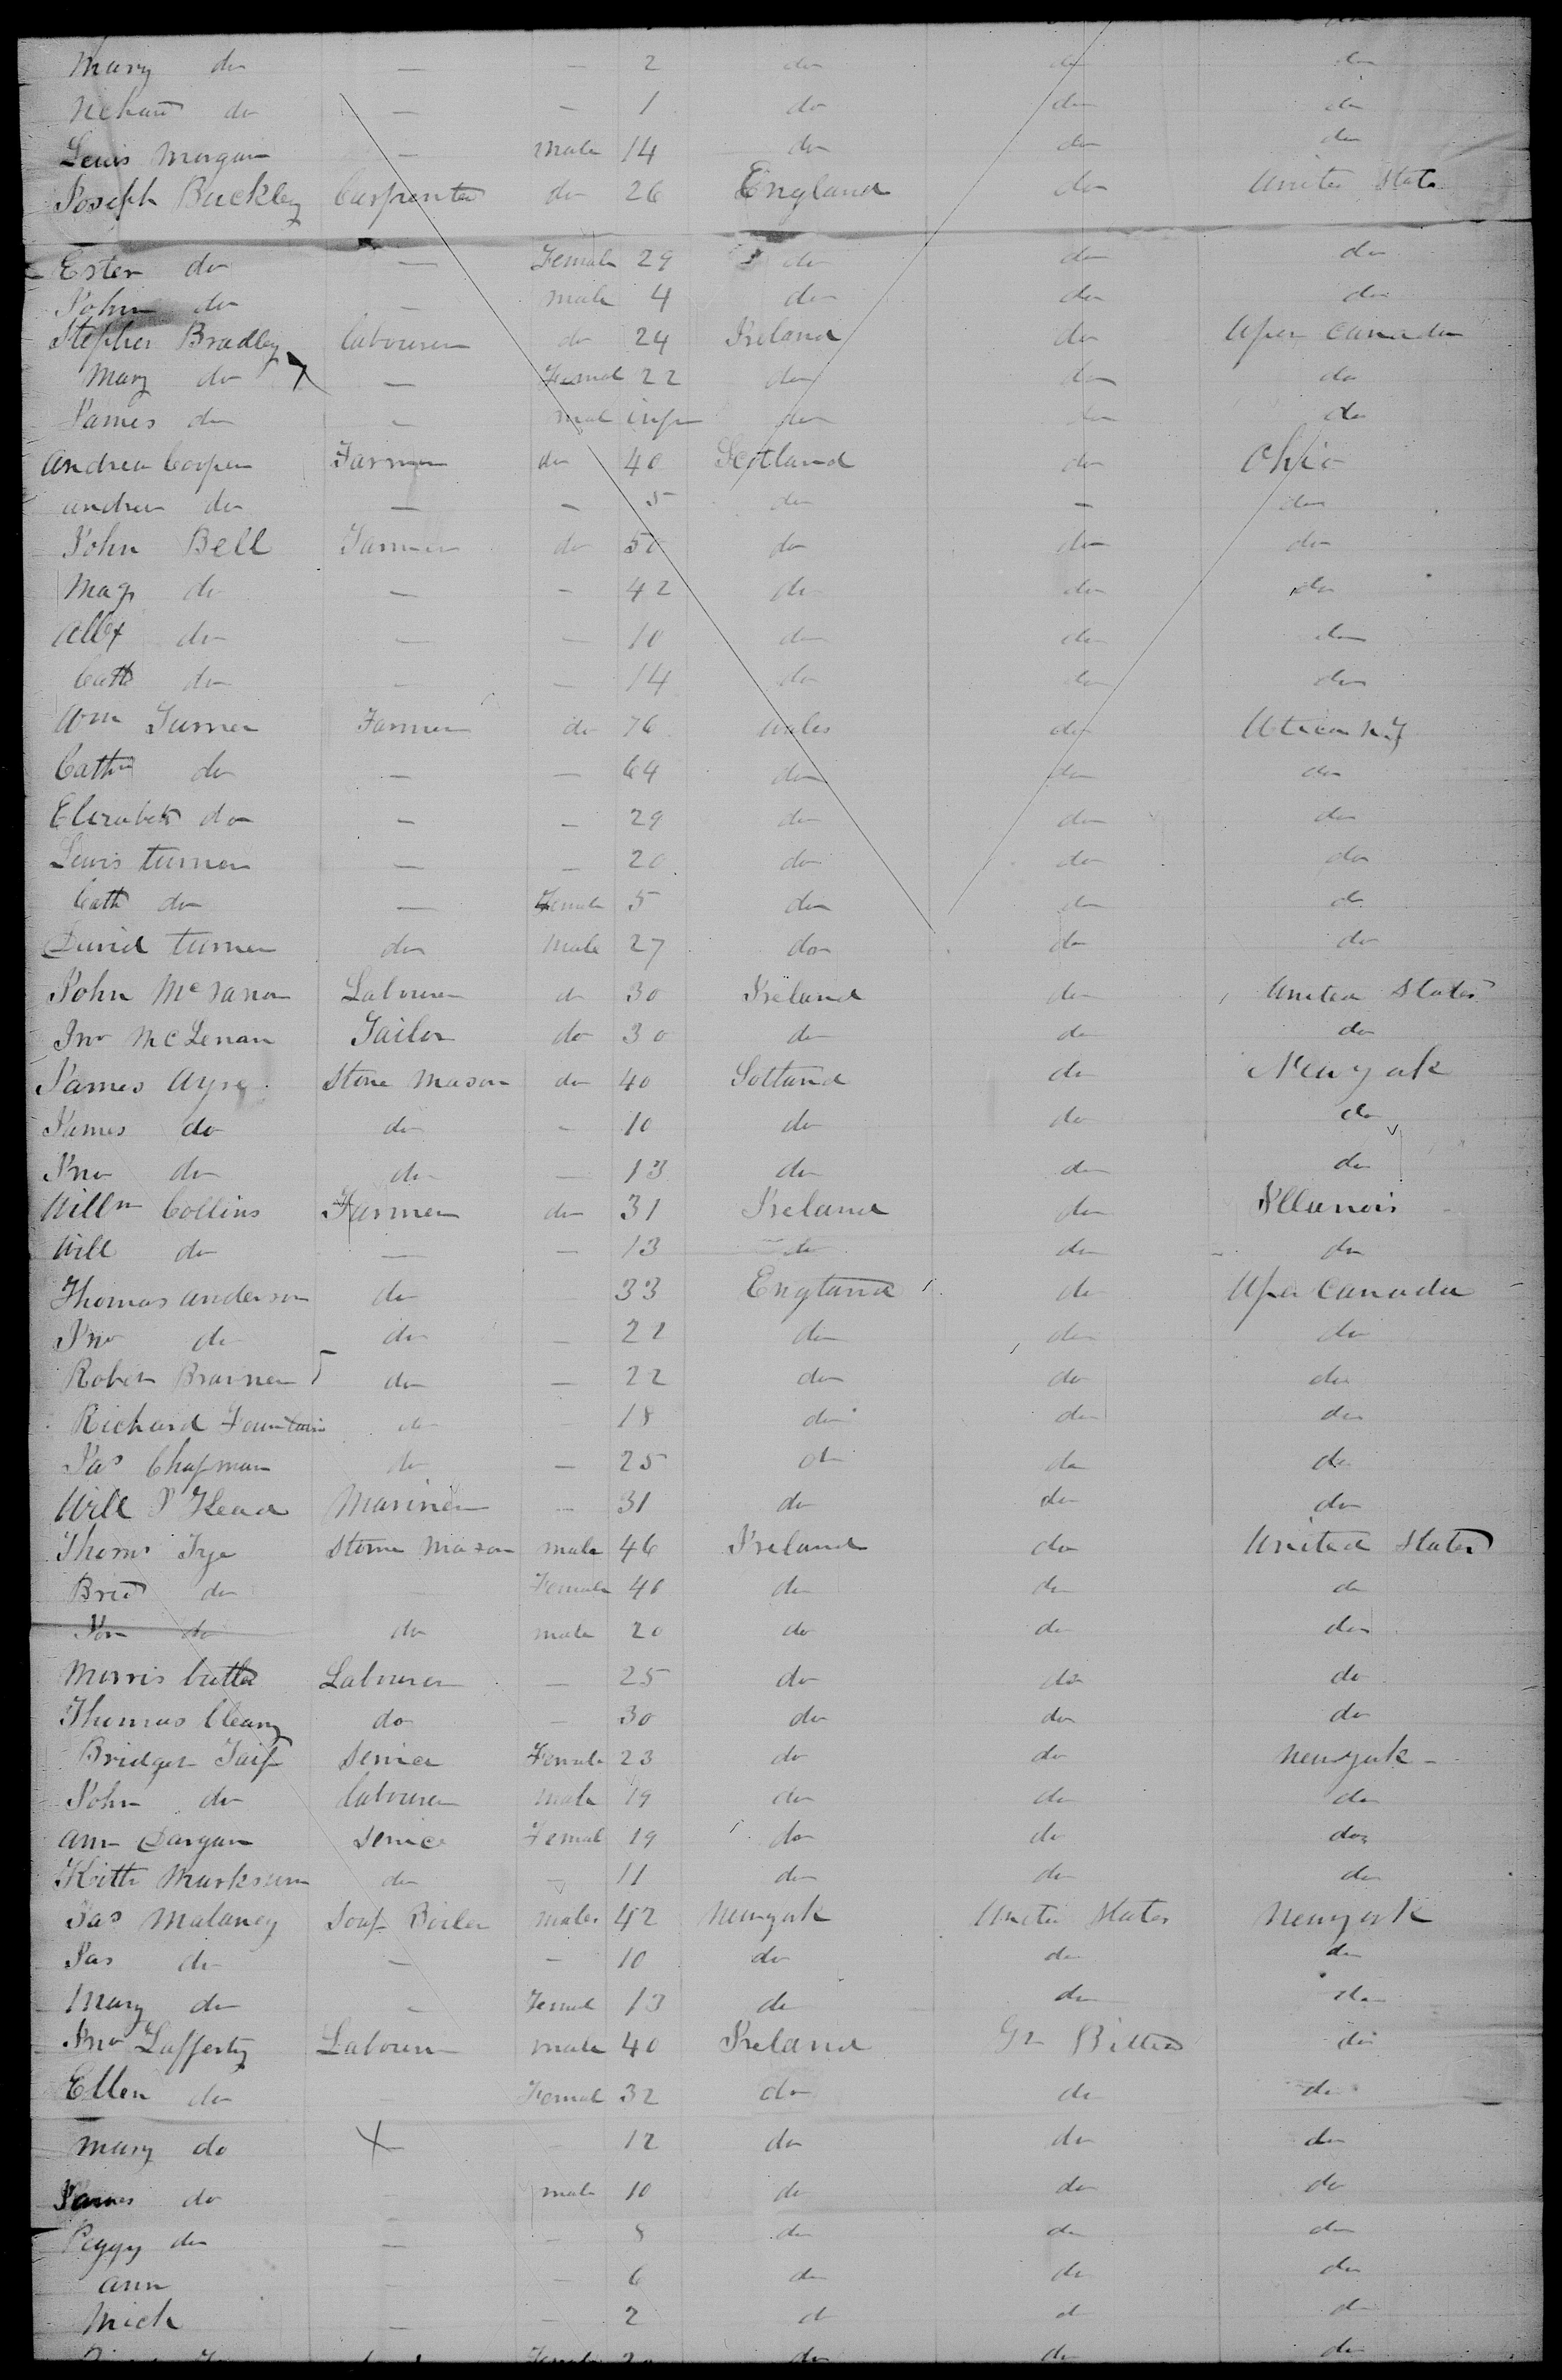 do
Mary do — — 2 do do do
do — — 1 do do do
Lewis Morgan — male 14 do do do
Joseph Buckley Carpenter do 26 England do United State
Ester do — Female 29 do do do
John do — male 4 do do do
Stephen Bradley labourer do 24 Ireland do Uper Canada
Mary do — Femal 22 do do do
James do — mal inf do do do
Andrew Cooper Farmer do 40 Scotland do Ohio
andrew do — — 5 do — do
John Bell Farmer do 50 do do do
Mag do — — 42 do do do
Allex do — — 10 do do do
Cath do — — 14 do do do
Wm Turner Farmer do 76 Wales do Utica N.Y
Cathn do — — 64 do do do
Elizabeth do — — 29 do do do
Lewis turner — — 20 do do do
Cath do — Female 5 do do do
David turner do Male 27 do do do
John Mc Labourer do 30 Ireland do United States
Jno McLenan Tailor do 30 do do do
James Ayre Stone Mason do 40 Sotland do New york
James do do - 10 do do do
Jno do do — 13 do do do
Willm Collins Farmer do 31 Ireland do Illanois
Will do — — 13 do do do
Thomas anderson do 33 England do Uper Canada
Jno do do — 22 do do do
Rober do — 22 do do do
Richard Fountain do 18 do do do
Jas Chapman do — 25 do do do
Will Head Mariner — 31 do do do
Thoms Stone Mason male 46 Ireland do United States
Brid do Female 46 do do do
Jon do do male 20 do do do
Morris butler Labourer — 25 do do do
Thomas Cleary do — 30 do do do
Bridget Taif Servier Female 23 do do Newyork -
John do labourer male 19 do do do
Ann Dargan Servic Femal 19 do do do
Kitti do — 11 do do do
Jas Malaney Soap Boiler male 42 Newyork United States Newyork
Jas do — — 10 do do do
Mary do — Femal 13 do do do
Jno Lafferty Labourer male 40 Ireland Gr do
Ellen do Femal 32 do do do
Mary do 12 do do do
James do male 10 do do do
Peggy do — — 8 do do do
Ann — 6 do do do
Mich — — 2 do do do
Female do do do